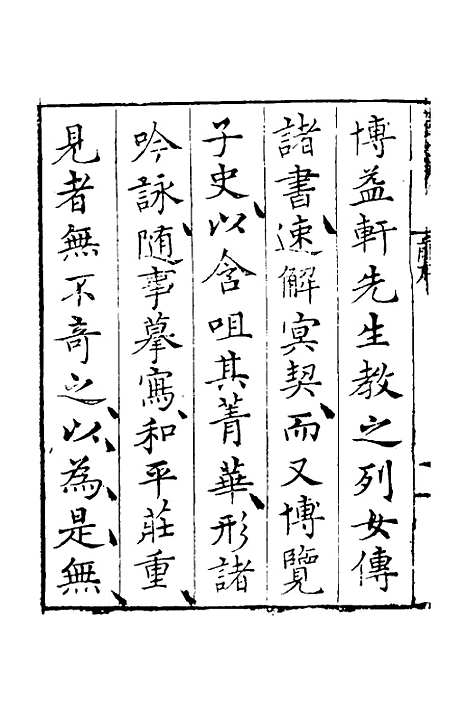 博益軒先生教之列女傳
諸書速解冥契而又博覽
子史以含咀其菁華形諸
吟詠随事摹寫和平莊重
見者無不奇之以為是無